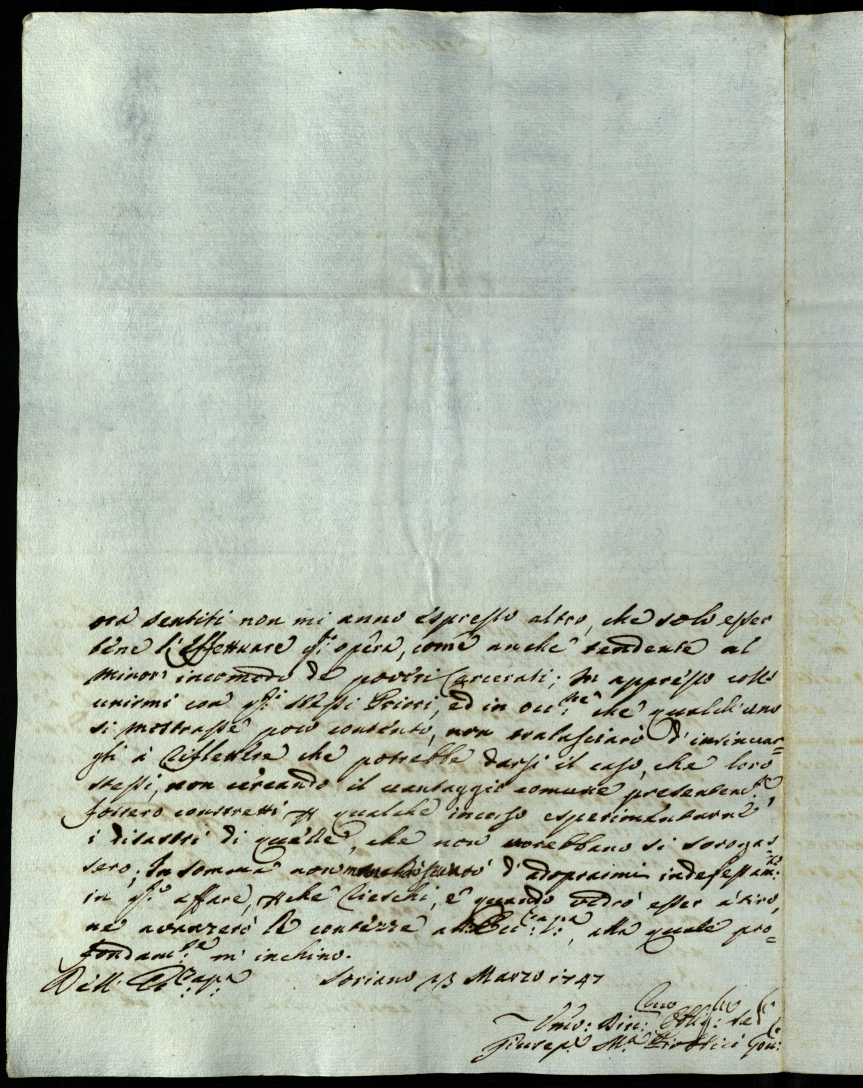 ora sentiti non mi anno espresso altro, che solo esser
bene l'effettuare q.ta opera, come anche tendente al
minor incomodo de poveri Carcerati; In appresso collo
unirmi con q.ti stessi Priori, ed in occ.ne che qualch'uno
si mostrasse poco contento, non tralasciarò d'insinuar=
gli à riflettere che potrebbe darsi il caso, che loro
stessi, non cercando il vantaggio comune presentem.te
fossero constretti p qualche incorso esperimentarne
i disastri di quelle, che non vorebbano si
sero; In somma non d'adoprarmi indefessam.te
in q.to affare, p che rieschi, e quando vedrò esser à tiro,
ne avanzerò le contezze all' Ecc.za V.ra, alla quale pro=
fondam.te m' inchino.
Dell' Ecc.za V.ra Soriano 13 Marzo 1747
Umo: Din: Obblig: Se
Giusep.e M.a Gov: